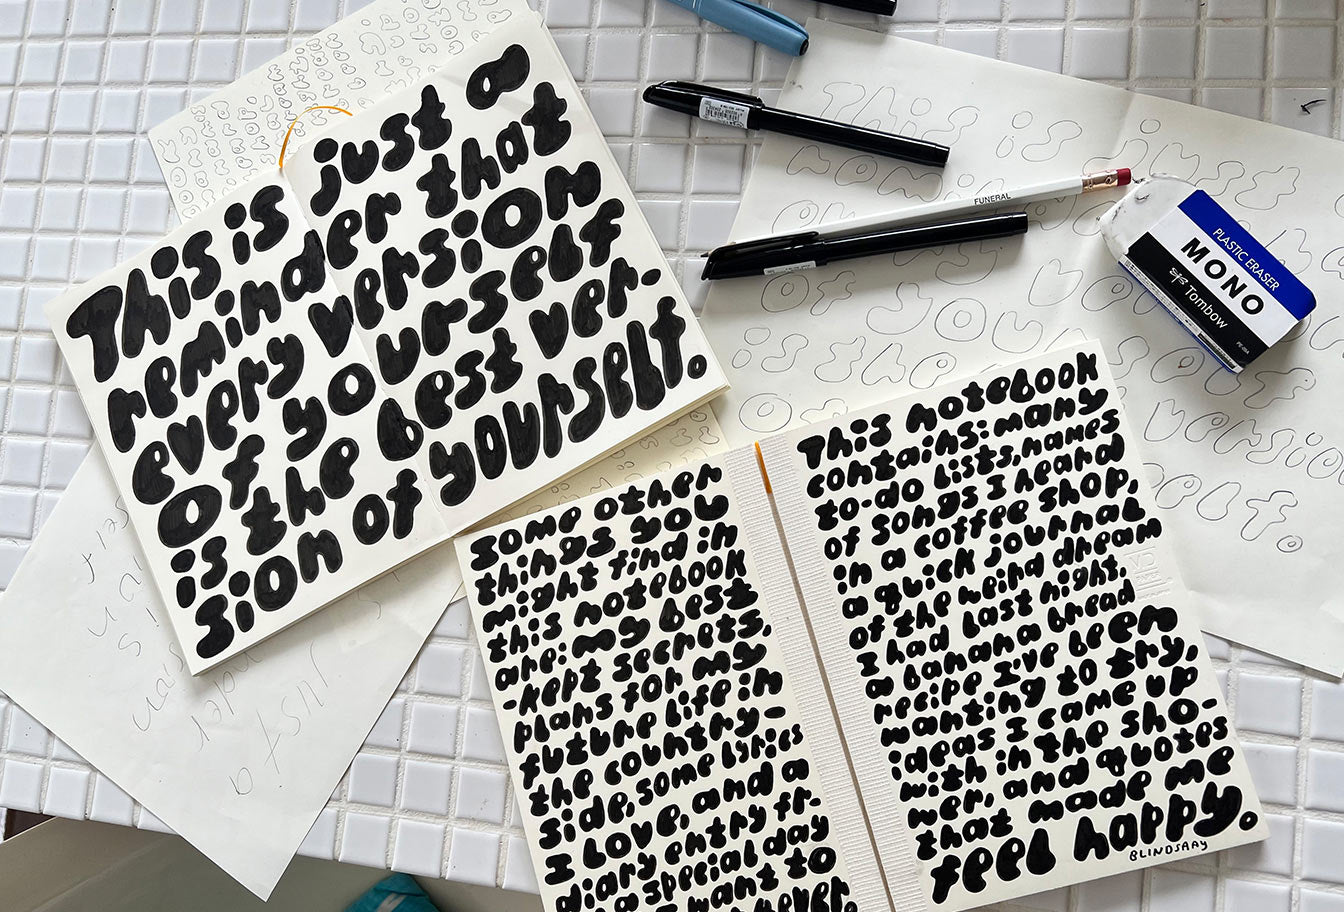 This is just a
reminder that
every version
of yourself
is the best ver-
sion of yourself.
some other
things you
might find in
this notebook
are: my best
-kept secrets,
plans for my
future life in
the country-
side, some lyrics
I love, and a
diary entry fr-
a special day
I want to
This notebook
contains: many
to-do lists, names
of songs I heard
in a coffee shop,
a quick journal
of the weird dream
I had last night,
a banana bread
recipe I've been
wanting to try,
ideas I came up
with in the sho-
wer, and quotes
that made me
feel happy.
BLINDSAAY
FUNERAL
PLASTIC ERASER
MONO
Tombow
PE-09A
This is
of your
is
yourself.
just
a